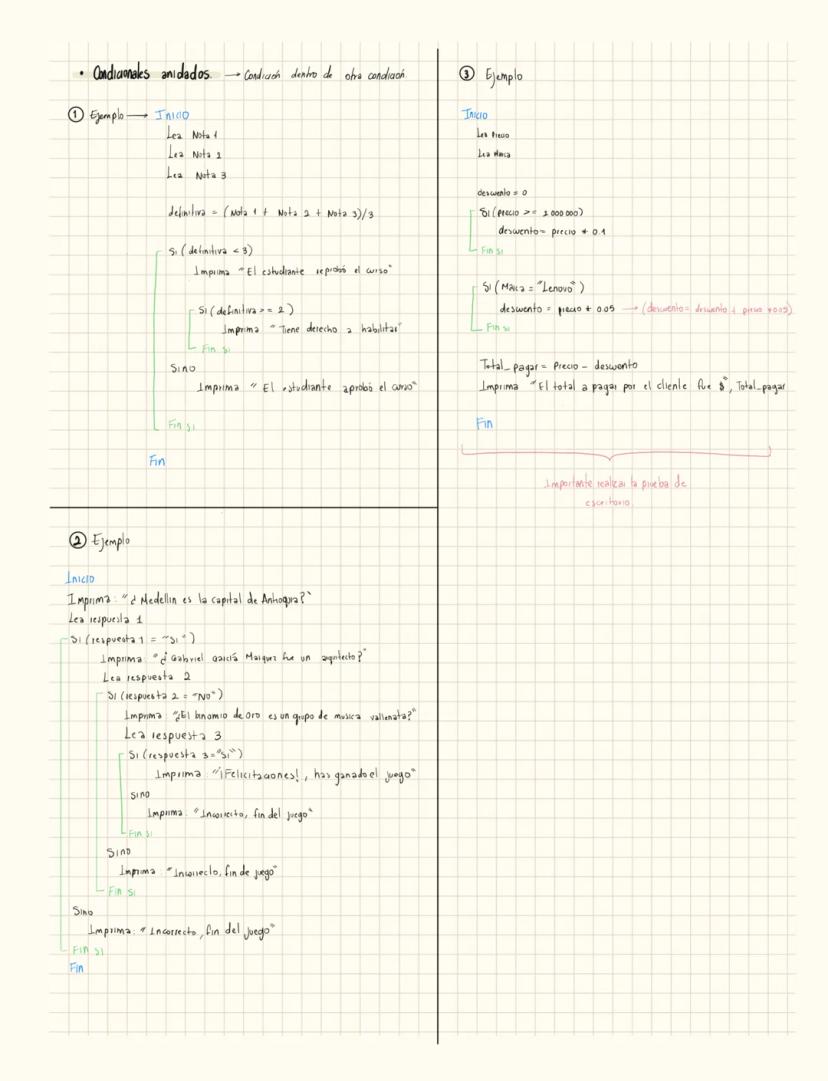 • Condicionales anidados. → Condición dentro de otra condición.
① Ejemplo → Inicio
Lea Nota 1
Lea Nota 2
Lea Nota 3
definitiva = (Nota 1 + Nota 2 + Nota 3)/3
Si (definitiva < 3)
Imprima "El estudiante reprobó el curso"
Si (definitiva >= 2)
Imprima "Tiene derecho a habilitar"
Fin si
Sino
Imprima "El estudiante aprobó el curso"
Fin si
Fin
② Ejemplo
Inicio
Imprima: "¿Medellin es la capital de Antioquia?"
Lea respuesta 1
Si (respuesta 1 = "si")
Imprima: "¿Gabriel García Marquez fue un arquitecto?"
Lea respuesta 2
Si (respuesta 2 = "No")
Imprima: "¿El binomio de oro es un grupo de musica vallenata?"
Lea respuesta 3
Si (respuesta 3 = "Si")
Imprima: "¡Felicitaciones!, has ganado el juego"
sino
Imprima: "Incorrecto, fin del juego"
Fin si
Sino
Imprima: "Incorrecto, fin de juego"
Fin si
Sino
Imprima: "Incorrecto, fin del juego"
Fin si
Fin
③ Ejemplo
Inicio
Lea Precio
Lea Marca
descuento = 0
Si (precio >= 1 000 000)
descuento = precio * 0.1
Fin si
Si (Marca = "Lenovo")
descuento = precio * 0.05 → (descuento = descuento + precio * 0.05)
Fin si
Total_pagar = Precio - descuento
Imprima "El total a pagar por el cliente fue $", Total_pagar
Fin
Importante realizar la prueba de
escritorio.